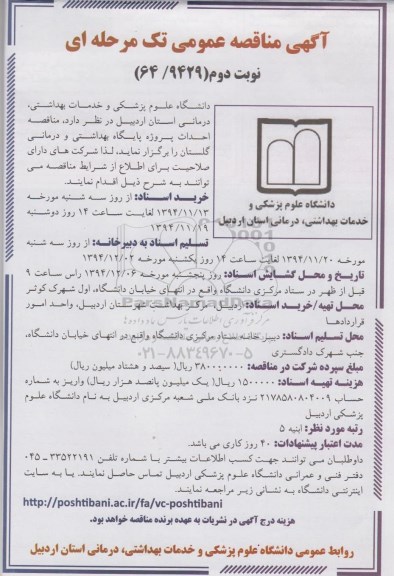 آگهی مناقصه عمومی تک مرحله ای
نوبت دوم(۶۴/ ۹۴۲۹)
دانشگاه علوم پزشکی و خدمات بهداشتی،
درمانی استان اردبیل در نظر دارد، مناقصه
احداث پروژه پایگاه بهداشتی و درمانی
گلستان را برگزار نماید، لذا شرکت های دارای
صلاحیت برای اطلاع از شرایط مناقصه می
توانند به شرح ذیل اقدام نمایند.
دانشگاه علوم پزشکی و
خدمات بهداشتی، درمانی استان اردبیل
خرید اسناد: از روز سه شنبه مورخه
۱۳۹۴/۱۱/۱۳ لغایت ساعت ۱۴ روز دوشنبه
۱۳۹۴/۱۱/۱۹
تسلیم اسناد به دبیرخانه: از روز سه شنبه
مورخه ۱۳۹۴/۱۱/۲۰ لغایت ساعت ۱۴ روز یکشنبه مورخه ۱۳۹۴/۱۲/۰۲
تاریخ و محل گشایش اسناد: روز پنجشنبه مورخه ۱۳۹۴/۱۲/۰۶ راس ساعت ۹
قبل از ظهر در ستاد مرکزی دانشگاه واقع در انتهای خیابان دانشگاه، اول شهرک کوثر
محل تهیه/خرید اسناد: اردبیل، مرکز بهداشت شهرستان اردبیل، واحد امور
قراردادها
محل تسلیم اسناد: دبیرخانه ستاد مرکزی دانشگاه واقع در انتهای خیابان دانشگاه،
جنب شهرک دادگستری
۰۲۱-۸۸۳۴۹۶۷۰-۵
مبلغ سپرده شرکت در مناقصه: ۳۸۰۰۰۰۰۰۰ ریال( سیصد و هشتاد میلیون ریال)
هزینه تهیه اسناد: ۱۵۰۰۰۰۰ ریال( یک میلیون پانصد هزار ریال) واریز به شماره
حساب ۲۱۷۸۵۸۰۸۲۰۰۹ نزد بانک ملی شعبه مرکزی اردبیل به نام دانشگاه علوم
پزشکی اردبیل
رتبه مورد نظر: ابنیه ۵
مدت اعتبار پیشنهادات: ۴۰ روز کاری می باشد.
داوطلبان می توانند جهت کسب اطلاعات بیشتر با شماره تلفن ۳۳۵۲۲۱۹۱ - ۰۴۵
دفتر فنی و عمرانی دانشگاه علوم پزشکی اردبیل تماس حاصل نمایند. یا به سایت
اینترنتی دانشگاه به نشانی زیر مراجعه نمایند.
http://poshtibani.ac.ir/fa/vc-poshtibani
هزینه درج آگهی در نشریات به عهده برنده مناقصه خواهد بود.
روابط عمومی دانشگاه علوم پزشکی و خدمات بهداشتی، درمانی استان اردبیل